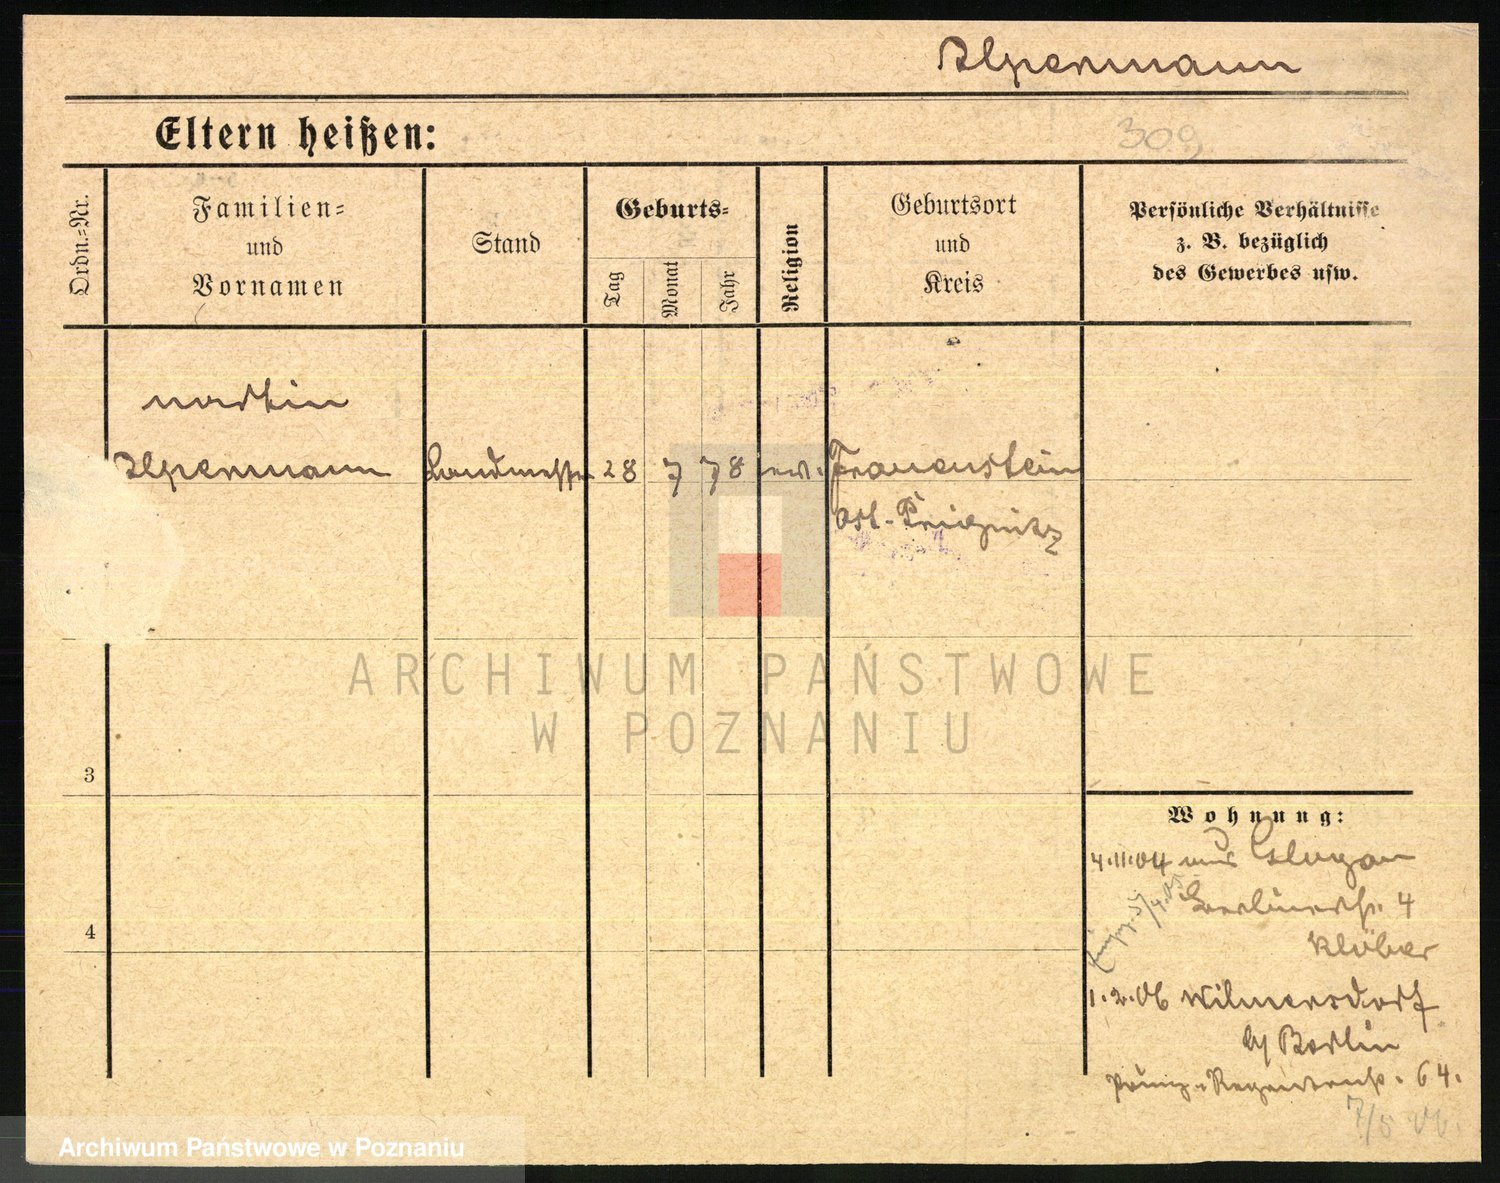 Ilgenmann
Eltern heißen:
309
Ordn.=Nr.
Familien=
und
Vornamen
Stand
Geburts=
Tag
Monat
Jahr
Religion
Geburtsort
und
Kreis
Persönliche Verhältnisse
z. B. bezüglich
des Gewerbes usw.
Martin
Landmesser 28 7 78 ev. Frauenstein
Ost-Prignitz
ARCHIWUM PAŃSTWOWE
W POZNANIU
3
4
Wohnung:
4.11.04 aus Glogau
4
Klöber
1.2.06 Wilmersdorf
b/ Berlin
Prinz-Regentenstr. 64.
7/5 06.
Archiwum Państwowe w Poznaniu